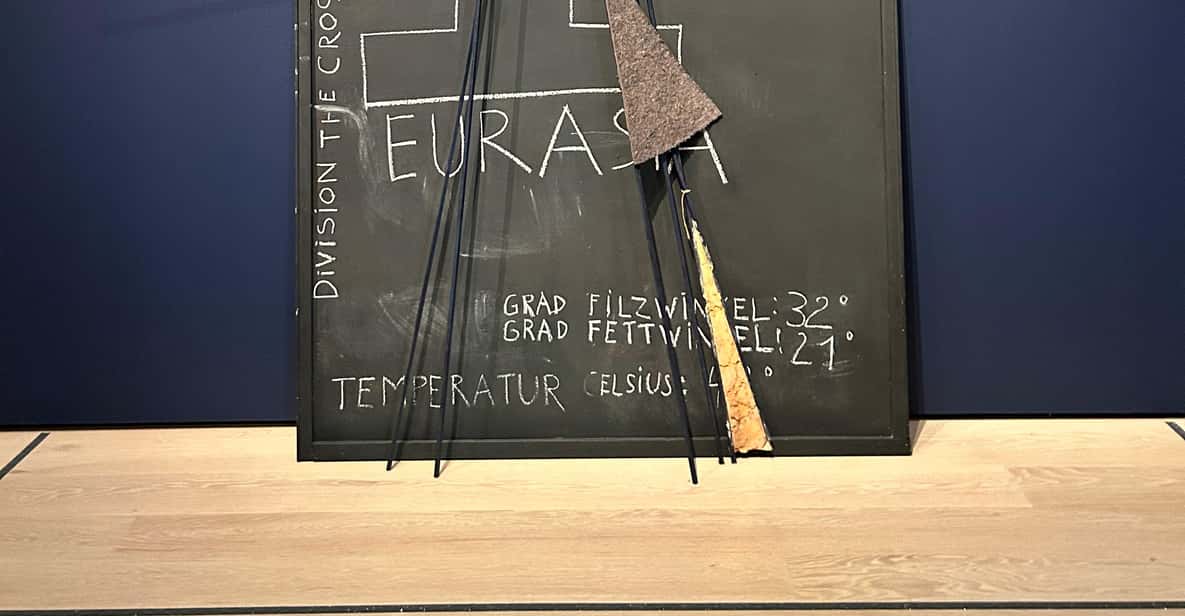 DIVISION THE CROS
EURASIA
GRAD FILZWINKEL: 32°
GRAD FETTWINKEL: 21°
TEMPERATUR CELSIUS: